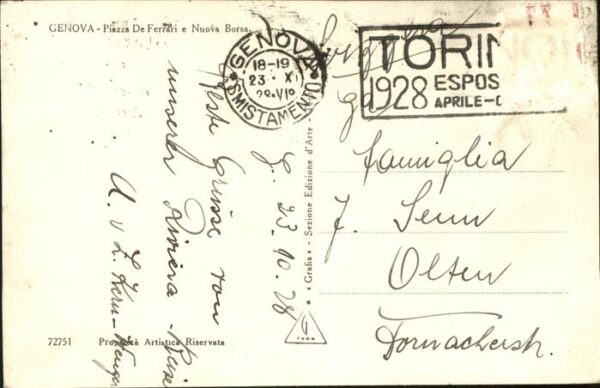 GENOVA - Piazza De Ferrari e Nuova Borsa.
GENOVA
18-19
23 · XI
28 · VIº
SMISTAMENTO
TORIN
1928 ESPOS
APRILE-O
Beste Grüsse von
unserer Riviera-Reise
A. v L. Kern-Wenger
G. 23.10.28
Famiglia
J. Senn
Olten
Dornacherstr.
« Grafia » - Sezione Edizione d'Arte -
G
ROMA
72751 Proprietà Artistica Riservata